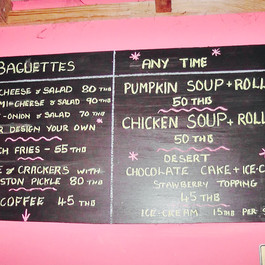 BAGUETTES
CHEESE & SALAD 80 THB
MI+CHEESE & SALAD 90 THB
-ONION & SALAD 70 THB
R DESIGN YOUR OWN
CH FRIES - 55 THB
E & CRACKERS WITH
STON PICKLE 80 THB
COFFEE 45 THB
ANY TIME
PUMPKIN SOUP + ROLL
50 THB
CHICKEN SOUP + ROLL
50 THB
DESERT
CHOCOLATE CAKE + ICE-C
STAWBERRY TOPPING
45 THB
ICE-CREAM 15 THB PER S